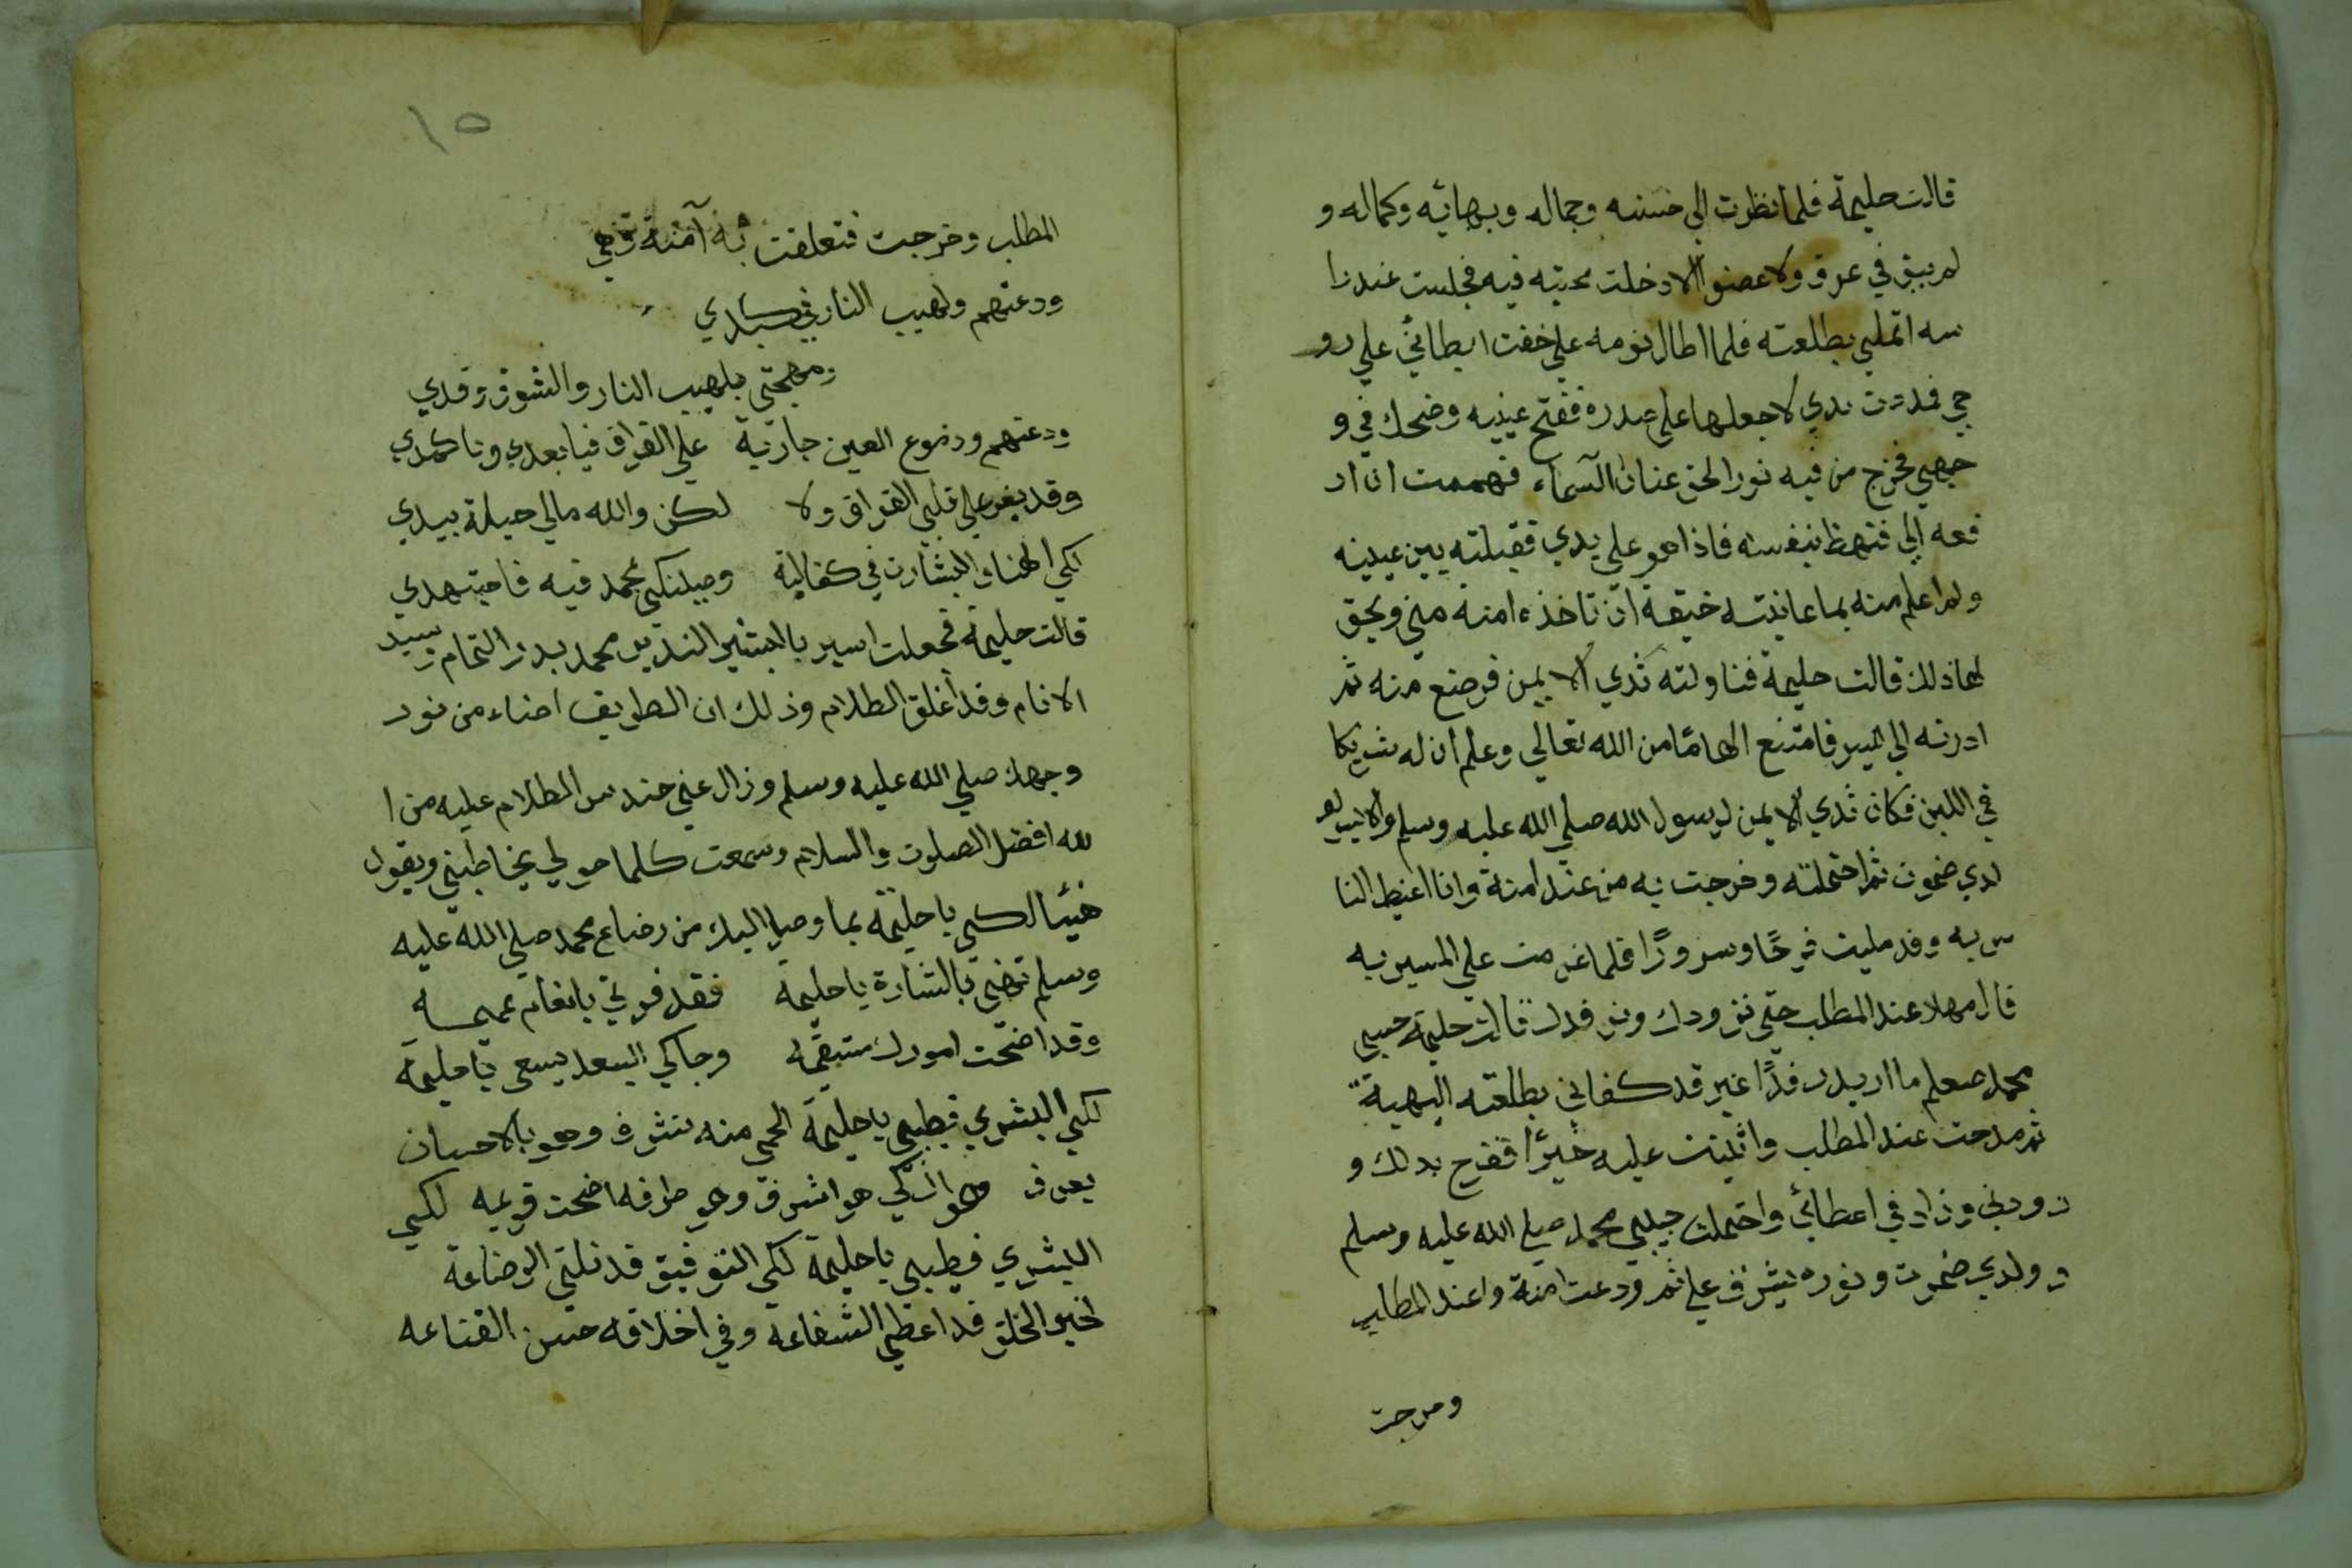 قالت حليمة فلما نظرت الي حسنه وجماله وبهائه وكماله و
لم يبق في عرق ولا عضو الا دخلت محبته فيه فجلست عند را
سه اتملي بطلعته فلما اطال نومه علي خفت ابطائي علي رو
حي فمددت يدي لاجعلها علي صدره ففتح عينيه وضحك في و
جهي فخرج من فيه نور الحق عنان السماء فهممت ان ار
فعه الي فنهظ بنفسه فاذا هو علي يدي فقبلته بين عينيه
ولم اعلم منه بما عاينته خيقة ان تاخذه امنة مني ويحق
لها ذلك قالت حليمة فناولته ثدي الايمن فرضع منه ثم
ادرته الي اليسر فامتنع الهامًا من الله تعالي وعلم ان له شريكا
في اللبن فكان ثدي الايمن لرسول الله صلي الله عليه وسلم والايسر لو
لدي ضمرت ثم احتملته وخرجت به من عند امنة وانا اغيظ النا
س به وقد مليت فرحًا وسرورًا فلما عزمت علي المسير به
قال مهلا عند المطلب حتي نزودك ونرفدك قالت حليمة حسبي
محمد صعلم ما اريد رفدًا غير قد كفاني بطلعته البهية
ثم مدحت عند المطلب واثنيت عليه خيرًا ففرح بدلك و
زودني وزاد في اعطائي واحتملت حبيبي محمد صلي الله عليه وسلم
وولدي ضمرت ونوره يشرف علي ثم ودعت امنة واعند المطلب
وخرجت
١٥
المطلب وخرجت فتعلقت به آمنة وهي
ودعتهم ولهيب النار في كبدي
ومهجتي بلهيب النار والشوق وقدي
ودعتهم ودموع العين جارية علي الفراق فيا بعدي ويا كمدي
وقد يعز علي قلبي الفراق ولا لكن والله مالي حيلة بيدي
لكي الهنا والبشارة في كفالية وصيلنكي محمد فيه فاجتهدي
قالت حليمة فجعلت اسير بالبشير النذير محمد بدر التمام سيد
الانام وقد أغلق الظلام وذلك ان الطريق اضاء من نور
وجهه صلي الله عليه وسلم وزال عني حندس الظلام عليه من ا
لله افضل الصلوت والسلام وسمعت كلما حولي يخاطبني ويقول
هنيئا لكي يا حليمة بما وصل اليك من رضاع محمد صلي الله عليه
وسلم تهني بالبشارة يا حليمة فقد فزتي بانعام عميمه
وقد اضحت امورك مستقيمه وجاكي السعد يسعى يا حليمة
لكي البشري فطيبي يا حليمة الحمي منه تشرف وهو بالاحسان
يعرف وهو الذكي هو اشرف وهي طرفه اضحت قويمه لكي
البشري فطيبي يا حليمة لكي التوفيق قد نلتي الرضاعة
لخير الخلق قد اعطي الشفاعه وفي اخلاقه حسن القناعه